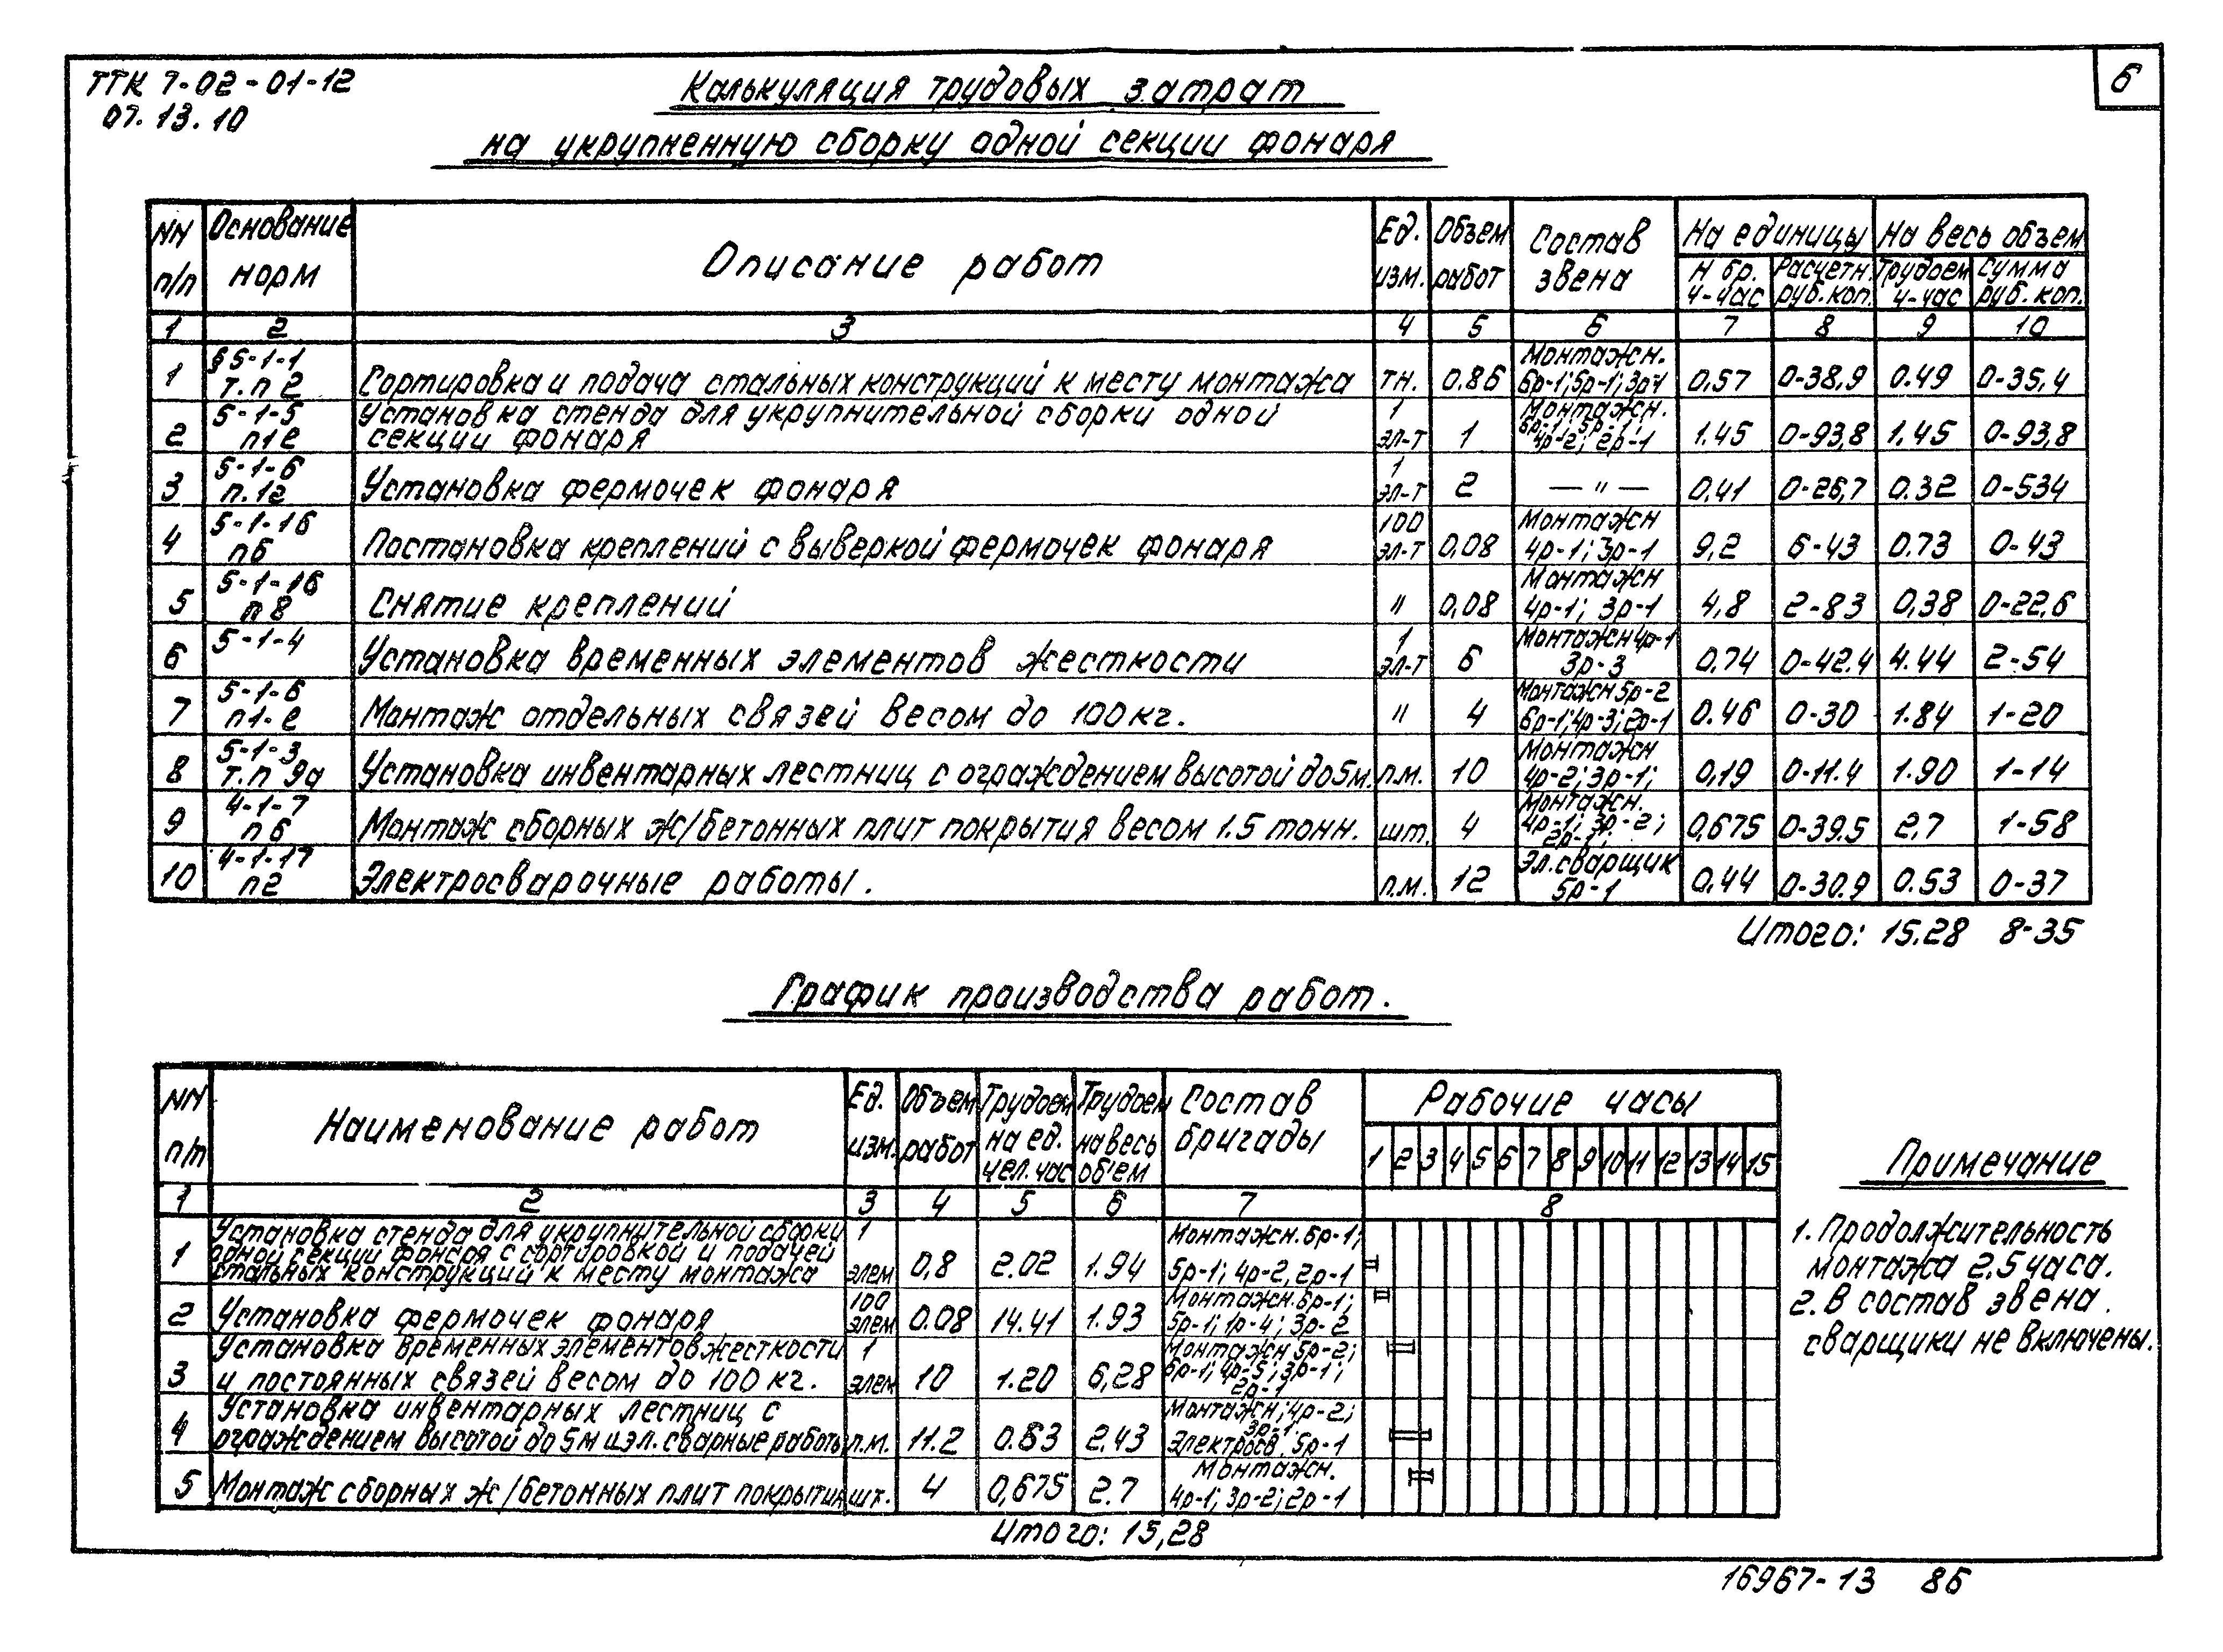 ТТК 7-02-01-12
07.13.10
6
Калькуляция трудовых затрат
на укрупненную сборку одной секции фонаря
NN п/п | Основание норм | Описание работ | Ед. изм. | Объем работ | Состав звена | На единицы | На весь объем
Н бр. ч-час | Расчетн. руб. коп. | Трудоем ч-час | Сумма руб. коп.
1 | 2 | 3 | 4 | 5 | 6 | 7 | 8 | 9 | 10
1 | § 5-1-1 т.п 2 | Сортировка и подача стальных конструкций к месту монтажа | тн. | 0.86 | Монтажн. 6р-1; 5р-1; 3р-1 | 0.57 | 0-38,9 | 0.49 | 0-35,4
2 | 5-1-5 п1е | Установка стенда для укрупнительной сборки одной секции фонаря | 1 эл-т | 1 | Монтажн. 6р-1; 5р-1; 4р-2; 2р-1 | 1.45 | 0-93,8 | 1.45 | 0-93,8
3 | 5-1-6 п.1г | Установка фермочек фонаря | 1 эл-т | 2 | — " — | 0.41 | 0-26,7 | 0.32 | 0-534
4 | 5-1-16 п6 | Постановка креплений с выверкой фермочек фонаря | 100 эл-т | 0,08 | Монтажн 4р-1; 3р-1 | 9,2 | 6-43 | 0.73 | 0-43
5 | 5-1-16 п8 | Снятие креплений | " | 0,08 | Монтажн 4р-1; 3р-1 | 4,8 | 2-83 | 0,38 | 0-22,6
6 | 5-1-4 | Установка временных элементов жесткости | 1 эл-т | 6 | Монтажн 4р-1 3р-3 | 0.74 | 0-42.4 | 4.44 | 2-54
7 | 5-1-6 п1-е | Монтаж отдельных связей весом до 100 кг. | " | 4 | Монтажн 5р-2 6р-1; 4р-3; 2р-1 | 0.46 | 0-30 | 1.84 | 1-20
8 | 5-1-3 т.п 9а | Установка инвентарных лестниц с ограждением высотой до 5м. | п.м. | 10 | Монтажн 4р-2; 3р-1; | 0,19 | 0-11.4 | 1.90 | 1-14
9 | 4-1-7 п6 | Монтаж сборных ж/бетонных плит покрытия весом 1.5 тонн. | шт. | 4 | Монтажн. 4р-1; 3р-2; 2р-1; | 0,675 | 0-39.5 | 2,7 | 1-58
10 | 4-1-17 п2 | Электросварочные работы. | п.м. | 12 | Эл.сварщик 5р-1 | 0,44 | 0-30.9 | 0.53 | 0-37
Итого: 15.28 8-35
График производства работ.
NN п/п | Наименование работ | Ед. изм. | Объем работ | Трудоем на ед. чел. час | Трудоем на весь объем | Состав бригады | Рабочие часы
1 2 3 4 5 6 7 8 9 10 11 12 13 14 15
1 | 2 | 3 | 4 | 5 | 6 | 7 | 8
1 | Установка стенда для укрупнительной сборки одной секции фонаря с сортировкой и подачей стальных конструкций к месту монтажа | 1 элем | 0,8 | 2.02 | 1.94 | Монтажн. 6р-1; 5р-1; 4р-2, 2р-1
2 | Установка фермочек фонаря | 100 элем | 0.08 | 14.41 | 1.93 | Монтажн. 6р-1; 5р-1; 1р-4; 3р-2
3 | Установка временных элементов жесткости и постоянных связей весом до 100 кг. | 1 элем | 10 | 1.20 | 6,28 | Монтажн 5р-2; 6р-1; 4р-5; 3р-1; 2р-1
4 | Установка инвентарных лестниц с ограждением высотой до 5м и эл. сварные работы | п.м. | 11.2 | 0.83 | 2.43 | Монтажн; 4р-2; 3р-1. Электросв. 5р-1
5 | Монтаж сборных ж/бетонных плит покрытия | шт. | 4 | 0,675 | 2.7 | Монтажн. 4р-1; 3р-2; 2р-1
Итого: 15,28
Примечание
1. Продолжительность
монтажа 2.5 часа.
2. В состав звена
сварщики не включены.
16967-13 86